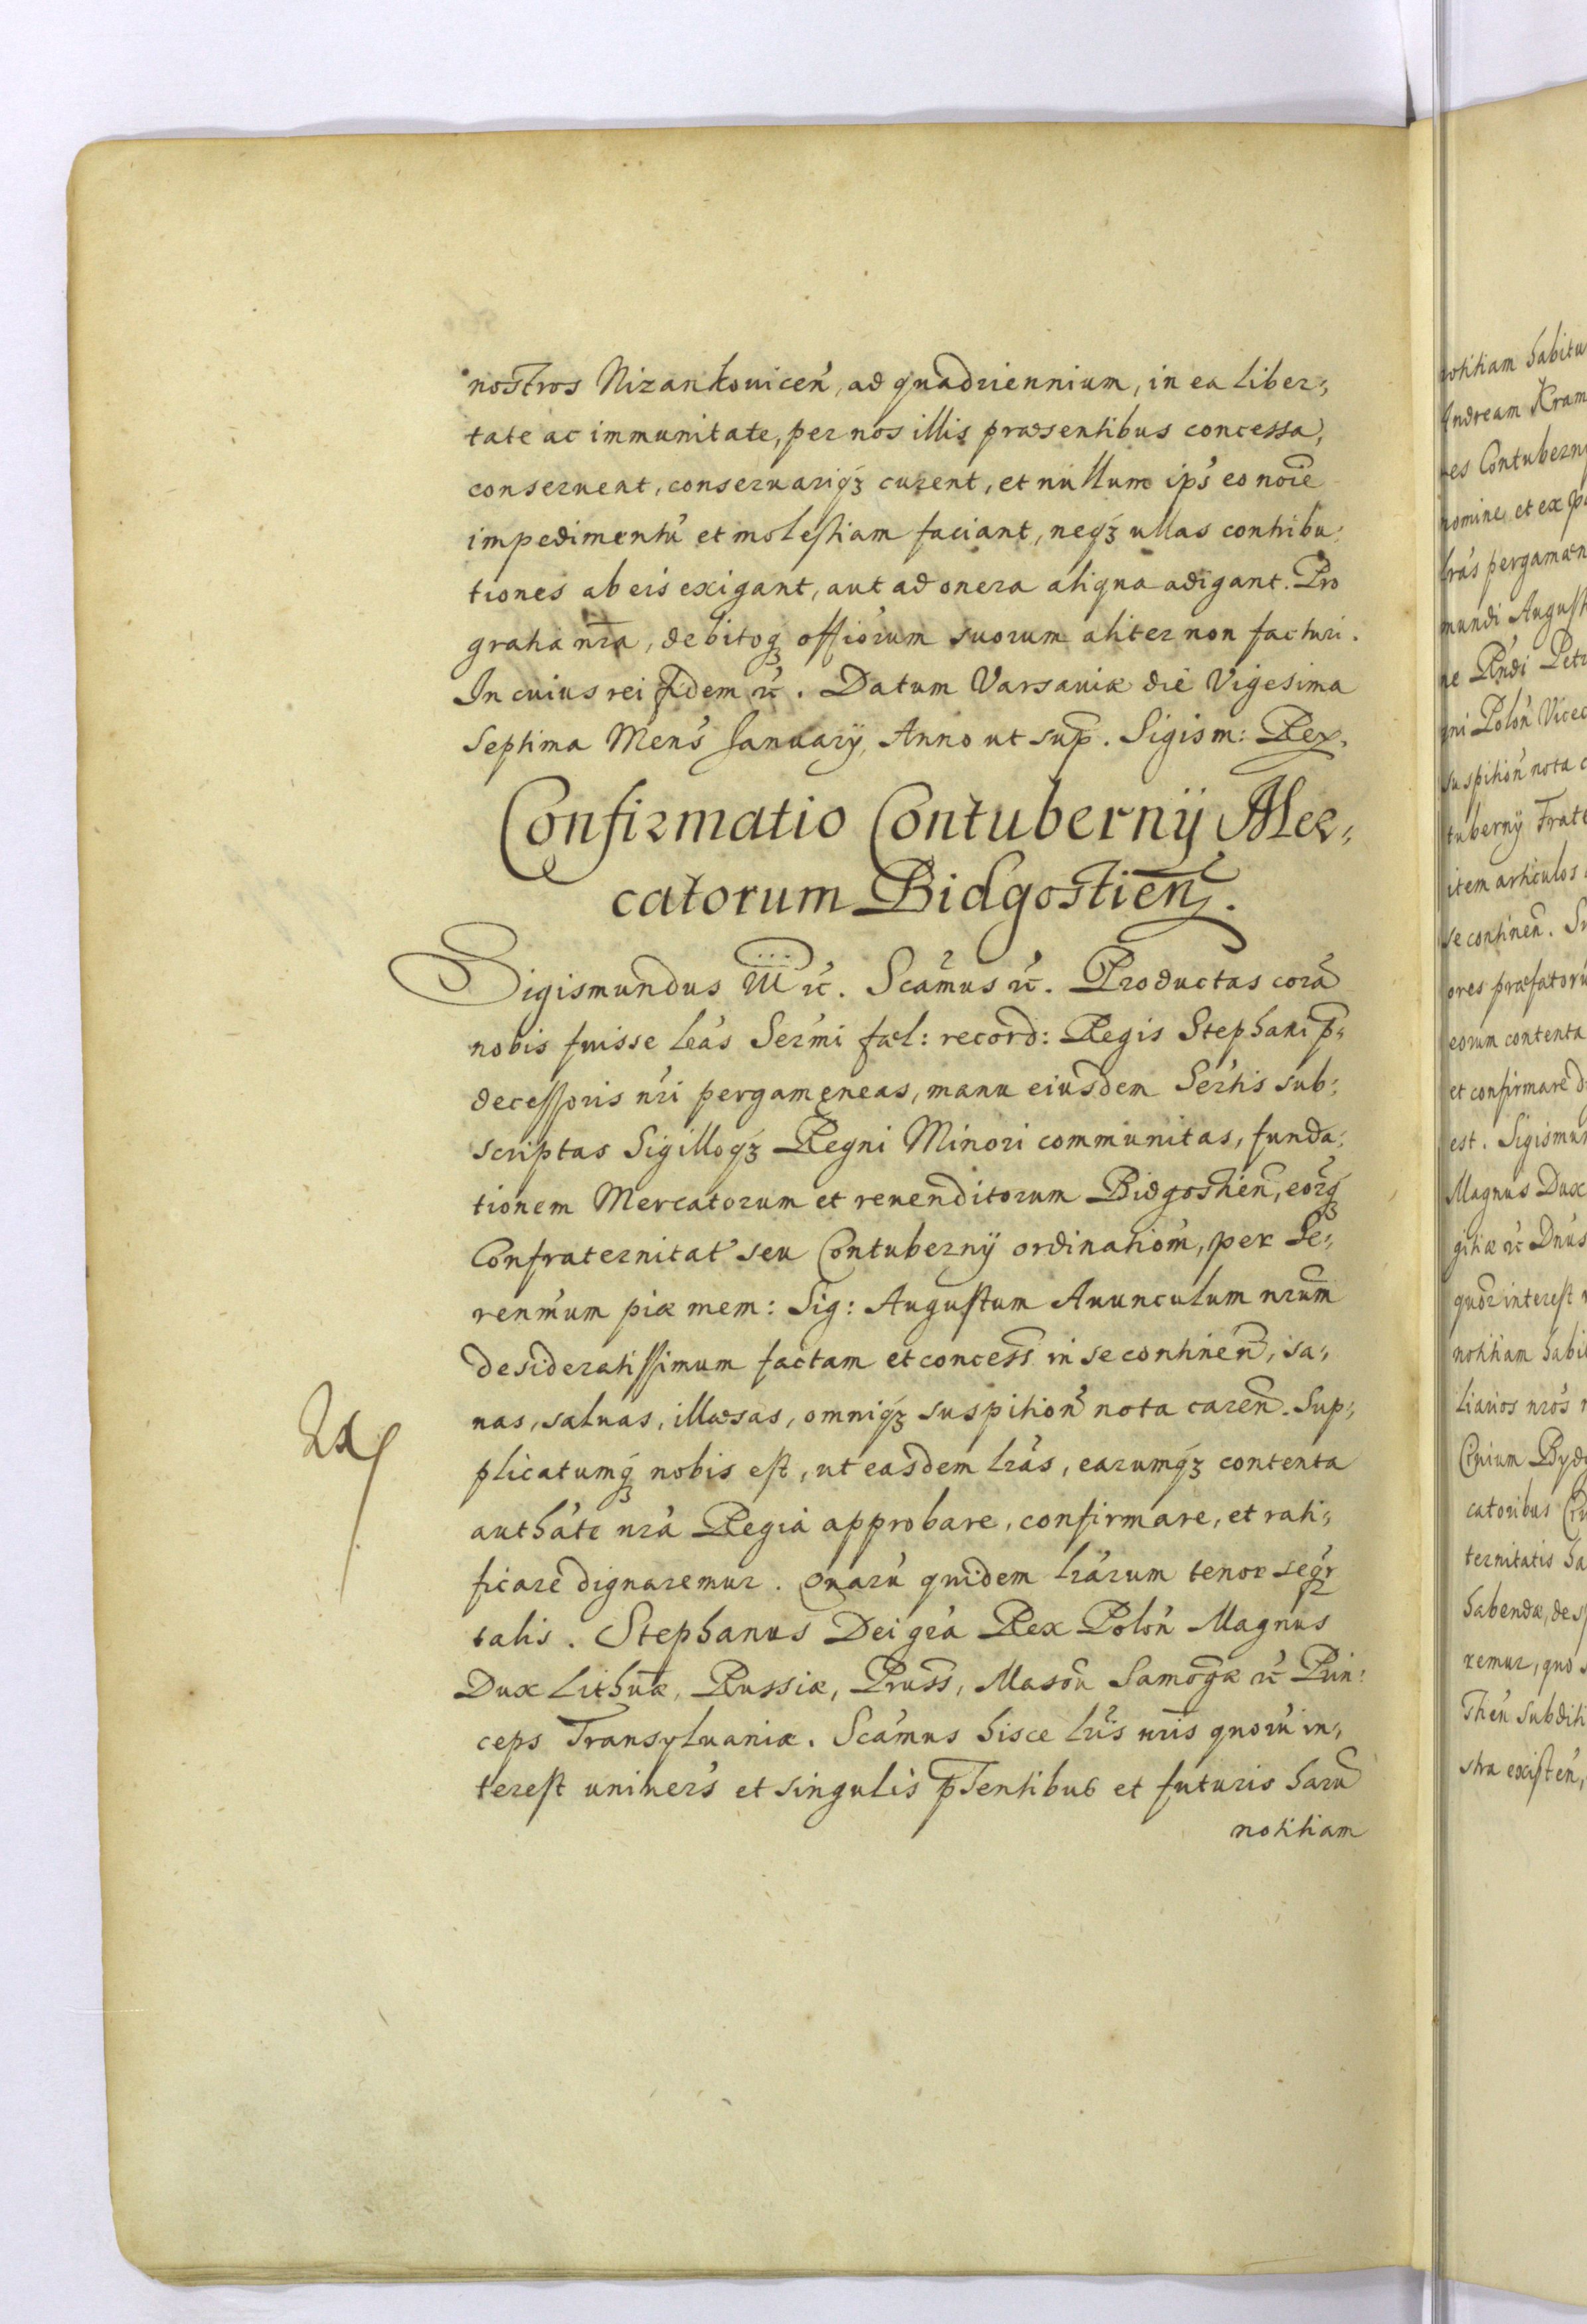 nostros Nizankouicen̕, ad quadriennium, in ea liber,
tate ac immunitate, per nos illis præsentibus concessa,
conseruent, conseruariqꝫ curent, et nullum ip̕s eo noīe
impedimentū et molestiam faciant, neqꝫ ullas contribu,
tiones ab eis exigant, aut ad onera aliqua adigant. Pro
gratia nr̄a, debitoqꝫ offiōrum suorum aliter non facturi.
In cuius rei fidem ꝛc̄. Datum Varsauiæ die Vigesima
Septima Mens̕ January, Anno ut sup̄. Sigism: Rex.
Confirmatio Contubernÿ Mer,
catorum Bidgostien̄.
Sigismundus III ꝛc̄. Sc̄amus ꝛc̄. Productas corā
nobis fuisse lr̄as Ser̄mi fæl: record: Regis Stephani p̄,
decessoris nr̄i pergameneas, manu eiusdem Ser̄tis sub,
scriptas Sigilloqꝫ Regni Minori communitas, funda,
tionem Mercatorum et reuenditorum Bidgostien̄, eor̄qꝫ
Confraternitat̕ seu Contubernÿ ordinatiōm, per Se,
ren̄mum piæ mem: Sig: Augustum Auunculum nr̄um
desideratissimum factam et concess̄ in se continen̄, sa,
nas, saluas, illæsas, omniqꝫ suspitiōn nota caren̄. Sup,
plicatumqꝫ nobis est, ut easdem lr̄as, earumqꝫ contenta
auth̄ate nr̄a Regia approbare, confirmare, et rati,
ficare dignaremur. Quarū quidem lr̄arum tenor seqr̄
talis. Stephanus Dei gr̄a Rex Polōn Magnus
Dux Lithuæ, Russiæ, Pruss̄, Masōu Samōgæ ꝛc̄ Prin,
ceps Transyluaniæ. Sc̄amus hisce lr̄is nr̄is quorū in,
terest uniuers̕ et singulis p̄sentibus et futuris harū
notitiam
notitiam habitu
Andream Kram
es Contuberni
nomine, et ex p
lr̄as pergamæn
mundi August
ne Rn̄di Petr
gni Polōn Vicec
suspitiōn nota c
tubernÿ Frat
item articulos
se continen̄. Su
ores præfatorū
eorum contenta
et confirmare d
est. Sigismun
Magnus Dux
gitiæ ꝛc̄ Dn̄us
quōr interest
notitiam habi
liarios nr̄os
Ciuium Byd
catoribus
ternitatis ha
habendæ, des
remur, quo
Thēn Subditi
stra existen̄,